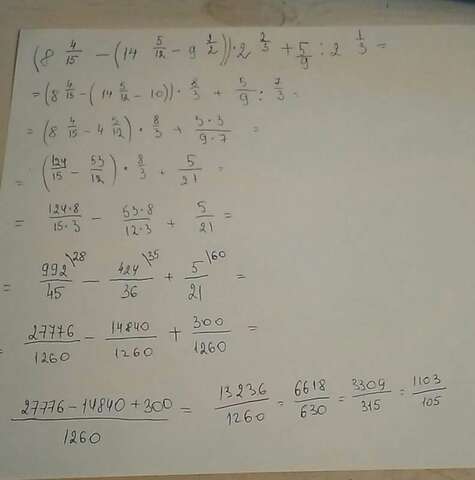 (8 4/15 - (14 5/12 - 9 2/2)) · 2 2/3 + 5/9 : 2 1/3 =
= (8 4/15 - (14 5/12 - 10)) · 8/3 + 5/9 : 7/3 =
= (8 4/15 - 4 5/12) · 8/3 + 5·3/9·7 =
= (124/15 - 53/12) · 8/3 + 5/21 =
= 124·8/15·3 - 53·8/12·3 + 5/21 =
= 992\28/45 - 424\35/36 + 5\60/21 =
= 27776/1260 - 14840/1260 + 300/1260 =
27776 - 14840 + 300/1260 = 13236/1260 = 6618/630 = 3309/315 = 1103/105